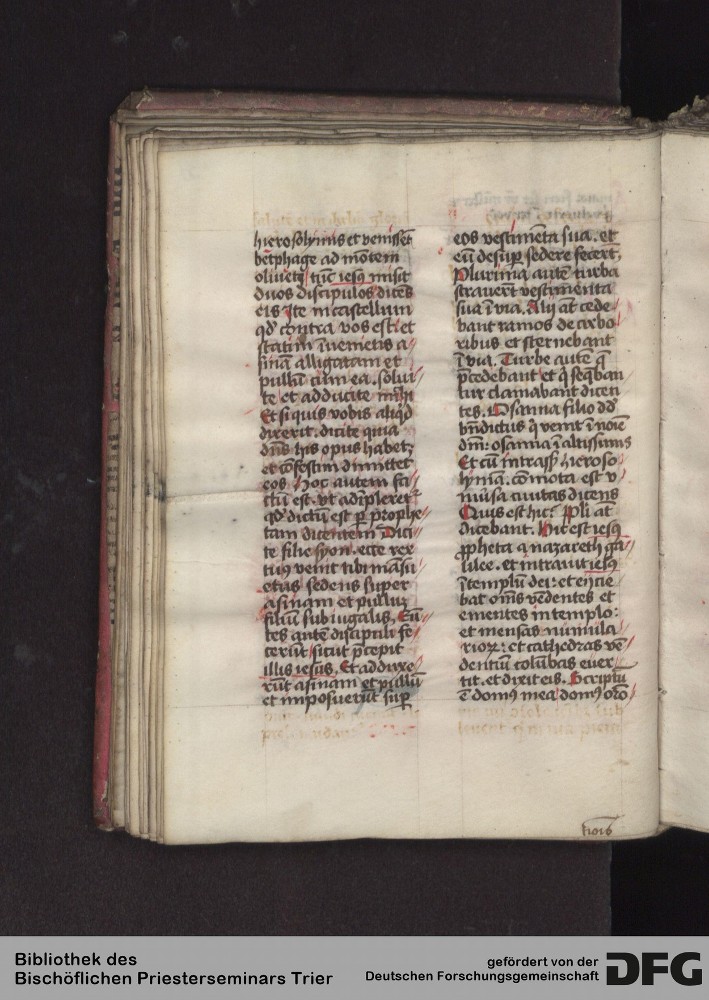 hierosolymis et venissēt
betphage ad mōtem
oliueti tūc iesꝰ misit
duos discipulos dicēs
eis Ite in castellum
qd̄ contra vos est et
statim īuenietis a/
sinā alligatam et
pullū cum ea. solui/
te et adducite mihi
Et si quis vobis aliqd
dixerit. dicite quia
dn̄s his opus habet
et cōfestim dimittet
eos. Hoc autem fa/
ctū est. vt adīpleret᷑
qd̄ dictū est ꝑ prophe/
tam dicentem Dici/
te filie syon. ecce rex
tuꝰ venit tibi māsu/
etus sedens super
asinam et pullum
filiū subiugalis. Eū/
tes autē discipuli fe/
cerūt sicut p̄cepit
illis iesus. Et adduxe/
rūt asinam et pullū
et imposuerūt suꝑ
eos vestimēta sua. et
eū desuꝑ sedere fecerūt.
Plurima autē turba
strauerūt vestimenta
sua ī via. Alij āt cede/
bant ramos de arbo/
ribus et sternebant
ī via. Turbe autē q̄
p̄cedebant et q̄ seq̄ban/
tur clamabant dicen
tes. Osanna filio dd̄
bn̄dictus q̇ venit ī noīe
dn̄i: osanna ī altissimis
Et cū intrass hieroso/
lymā. cōmota est v/
niuersa ciuitas dicens
Quis est hic? Ppli āt
dicebant. Hic est iesꝰ
ꝓpheta a nazareth ga/
lilee. et intrauit iesꝰ
ī templū dei: et eijcie/
bat om̄s vēdentes et
ementes in templo:
et mensas numula/
rioꝝ: et cathedras vē/
dentiū colūbas euer/
tit. et dixit eis. Scriptū
ē domꝰ mea domꝰ orō/
Bibliothek des
Bischöflichen Priesterseminars Trier
gefördert von der
Deutschen Forschungsgemeinschaft
DFG